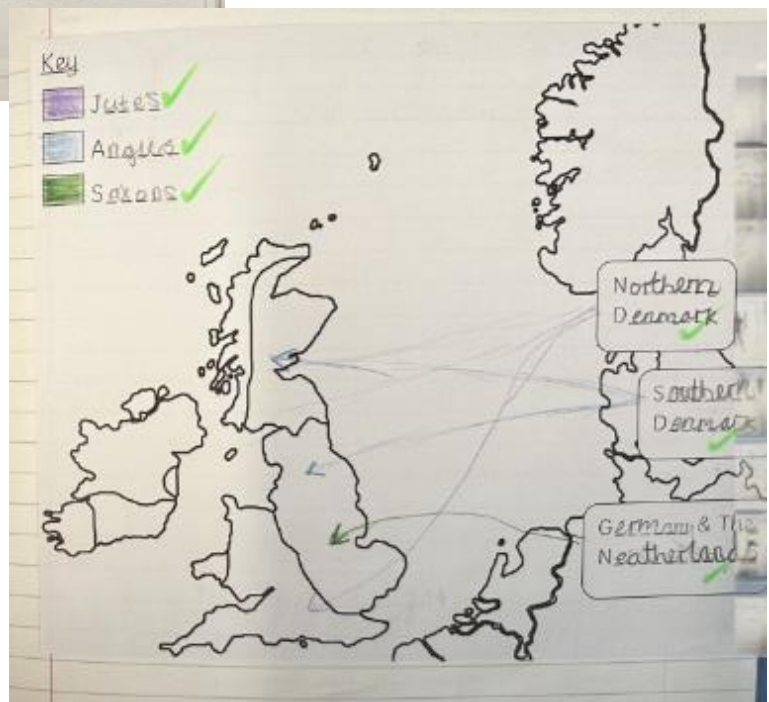 Key
Jutes
Angles
Saxons
Northern
Denmark
Southern
Denmark
Germany & The
Neatherlands